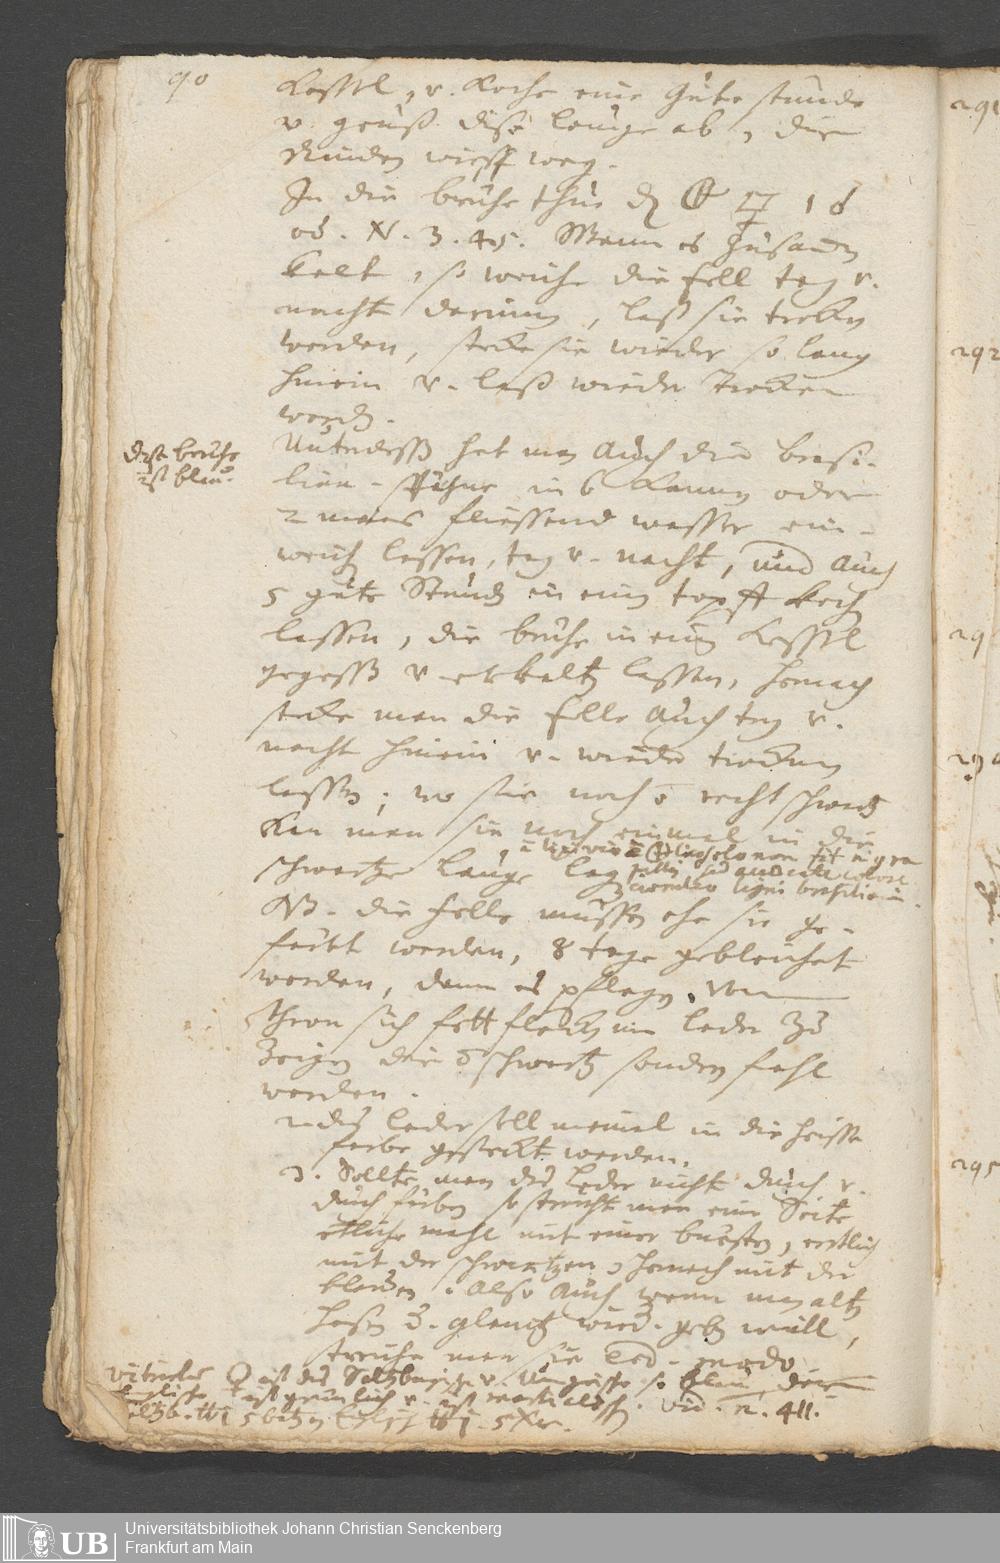 90
Kessel, v. Koche eine gute stunde
v. geuß dise lauge ab, die
Rinden wirff weg.
In die brühe thue
od. N. 3. 4. Wenn es
kalt, so weiche die fell tag v.
nacht darinnen, laß sie trocken
werden, stecke sie wieder so lang
hinein v. laß wieder trocken
werden.
dise brühe
ist blau.
Unterdeß hat man Auch die brasi-
lien-spähne in 6 Kannen oder
2 maas fliessend wasser ein-
weichen lassen, tag v. nacht, und Auch
5 gute Stunden in eim topff kochen
lassen, die brühe in eim Kessel
gegossen v. erkalten lassen, hernach
stecke man die felle Auch tag v.
nacht hinein v. wieder trocknen
lassen; wo sie noch recht schwartz
Kan man sie noch einmal in die
schwartze lauge
color
ligni brasiliani.
NB. die felle müssen ehe sie ge-
färbt werden, 8 tage gebleichet
werden, denn es pflegen vom
Thran sich fettflecken im leder zu
zeigen die schwartz sondern fahl
werden.
2. das leder soll niemal in die heisse
farbe gesteckt werden.
3. Sollte man das Leder nicht durch v.
durch färben so streicht man eine Seite
etliche mahl mit einer bürsten, erstlich
mit der schwartzen, hernach mit der
blauen. Also Auch wenn man alten
Hosen d. glantz wied. geben will,
streiche man sie eod. modo
ist das Saltzburger v. Ungrische so blau, das
Englische ist grünlich v. ist martialisch. vid. n. 411.
291
292
29
29
295
UB
Universitätsbibliothek Johann Christian Senckenberg
Frankfurt am Main